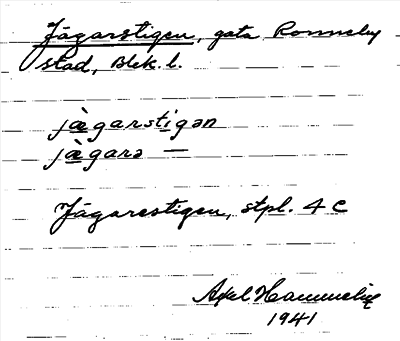 Jägarstigen, gata Ronneby
stad, Blek. l.
jä̀garstigən
jä̀garə —
Jägarestigen, stpl. 4 C
Axel Hammelin
1941